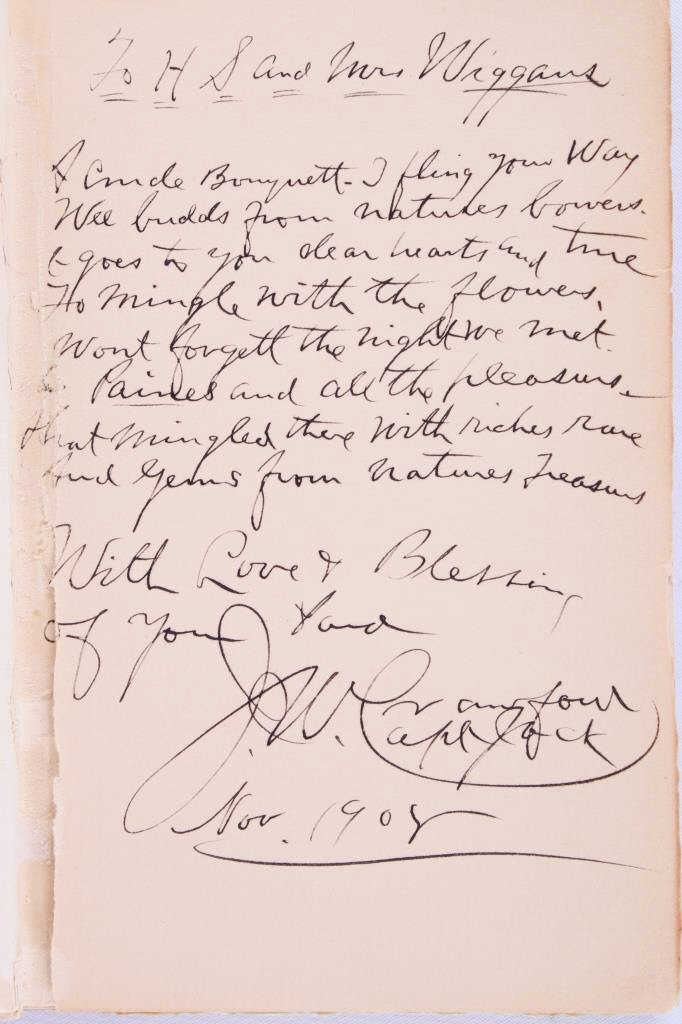 To H S and Mrs Wiggans
A Crude Bouquett - I fling your Way
Wee budds from natures bowers.
goes to you dear hearts and true
To Mingle with the flowers,
Wont forgett the night We met.
Paines and all the pleasure
that Mingled there With riches rare
And Gems from Natures Treasures
With Love & Blessing
of Your Pard
J. W. Crawford
Capt Jack
Nov. 1908